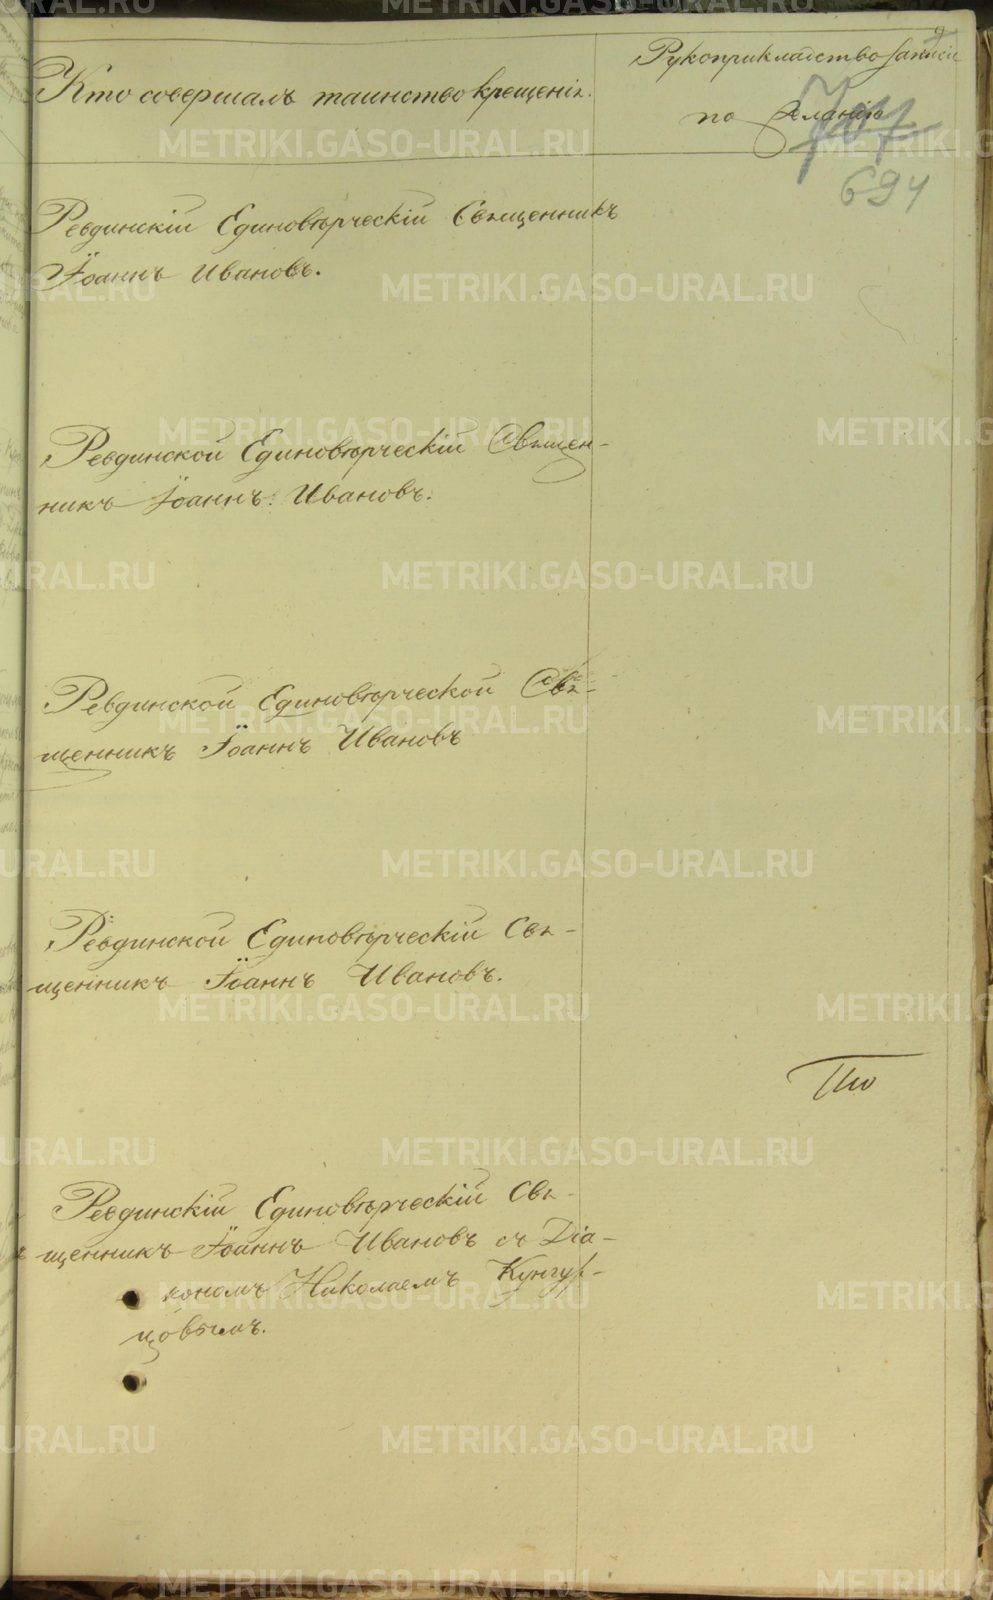 Кто совершалъ таинство крещенія.
Рукоприкладство записи
по желанію
707
694
Ревдинскій Единовѣрческій Священникъ
Іоаннъ Ивановъ.
Ревдинской Единовѣрческій Священ-
никъ Іоаннъ Ивановъ.
Ревдинской Единовѣрческой Свя-
щенникъ Іоаннъ Ивановъ
Ревдинской Единовѣрческій Свя-
щенникъ Іоаннъ Ивановъ.
Ревдинскій Единовѣрческій Свя-
щенникъ Іоаннъ Ивановъ съ Діа-
кономъ Николаемъ Кунгур-
цовымъ.
METRIKI.GASO-URAL.RU